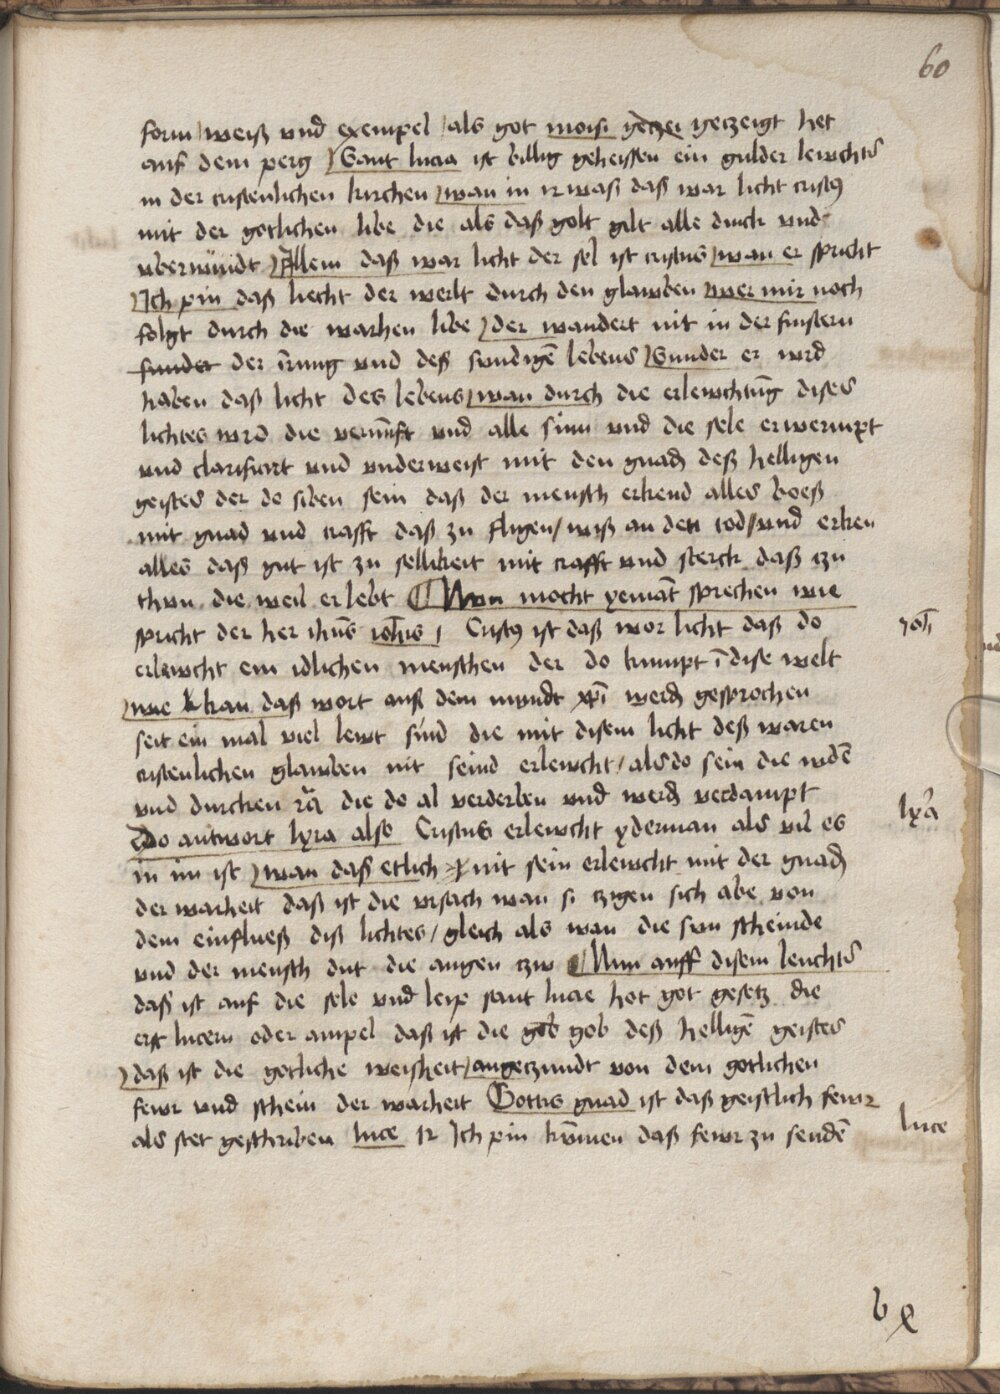 60
form / weiß vnd exempel / als got moisi geczei geczeigt het
auf dem perg / Sant lucia ist billig geheissen ein gulder lewchter
in der cristenlichen kirchen / wan in ir waß daß war licht cristus
mit der gotlichen libe die als daß golt gilt alle dinck vnd
vberwindt / Allein daß war licht der sel ist cristus / wan er spricht
Ich pin daß liecht der werlt durch den glawben / wer mir noch
folgt durch die warhen libe / der wandert nit in der finstern
sunder der irrung vnd deß sundigē lebens / Sunder er wird
haben daß licht des lebens / wan durch die erlewchtūg dises
lichtes wird die vernūft vnd alle sinn vnd die sele erwermpt
vnd clarifiirt vnd vnderweist mit den gnadē deß helligen
geistes der do siben sein daß der mensch erkend alles boeß
mit gnad vnd crafft daß zu fligen / wiß an den tod / vnd erken
alles daß gut ist zu sellikeit mit crafft vnd sterck daß czu
thun die weil er lebt Nun mocht yemāt sprechen wie
spricht der her ihūs ioh̄is 1 Cristus ist daß wor licht daß do
erlewcht ein idlichen menschen der do kumpt ī dise welt
wie k kan daß wort auß dem mundt xp̄i werdē gesprochen
seit ein mal viel lewt sind die mit disem licht deß waren
cristenlichen glawben nit seind erlewcht / als do sein die iudē
vnd durcken die do al verderben vnd werdē verdampt
Do antwort lyra also Cristus erlewcht yderman als vil es
in im ist / wan daß etlich nit sein erlewcht mit der gnadē
der warheit daß ist die vrsach wan si czigen sich abe von
dem einflueß diß lichtes / gleich als wan die sun scheinde
vnd der mensch dut die augen czw Nun auff disem leuchter
daß ist auf die sele vnd leip sant lucie hot got gesetz die
erst lucern oder ampel daß ist die gob gob deß helligē geistes
daß ist die gotliche weisheit / angeczundt von dem gotlichen
fewr vnd schein der warheit Gottis gnad ist daß geistlich fewr
als stet geschriben luce 12 Ich pin kūmen daß fewr zu sendē
ioh̄
lyra
luce